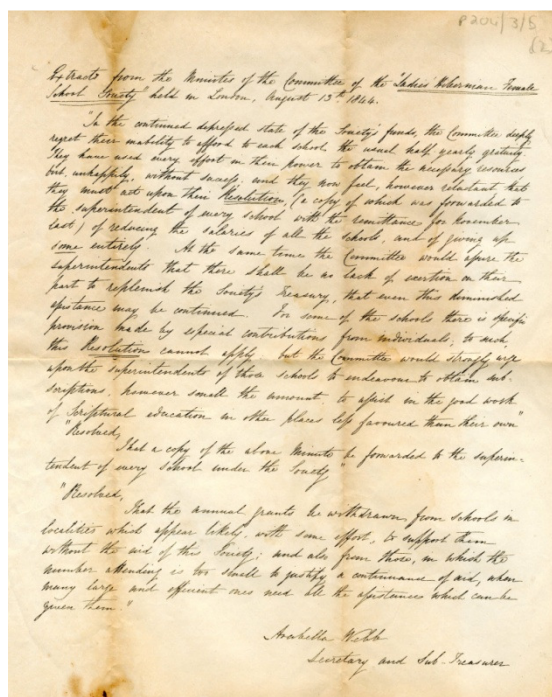 P204/3/5
Extracts from the Minutes of the Committee of the "Ladies' Hibernian Female
School Society" held in London, August 13th 1844.
"In the continued depressed state of the Society's funds, the Committee deeply
regret their inability to afford to each school the usual half yearly gratuity.
They have used every effort in their power to obtain the necessary resources
but, unhappily, without success; and they now feel, however reluctant that
they must act upon their Resolution, (a copy of which was forwarded to
the superintendent of every school with the remittance for November
last) of reducing the salaries of all the schools, and of giving up
some entirely. At the same time the Committee would assure the
superintendents that there shall be no lack of exertion on their
part to replenish the Society's Treasury, that even this diminished
assistance may be continued. For some of the schools there is specific
provision made by especial contributions from individuals; to such,
this Resolution cannot apply, but the Committee would strongly urge
upon the superintendents of those schools to endeavour to obtain sub-
scriptions, however small the amount, to assist in the good work
of Scriptural education in other places less favoured than their own"
"Resolved,
That a copy of the above Minute be forwarded to the superin-
tendent of every School under the Society"
"Resolved,
That the annual grants be withdrawn, from schools in
localities which appear likely, with some effort, to support them
without the aid of this Society; and also from those, in which the
number attending is too small to justify a continuance of aid, when
many large and efficient ones need all the assistance which can be
given them."
Arabella Webb
Secretary and Sub-Treasurer